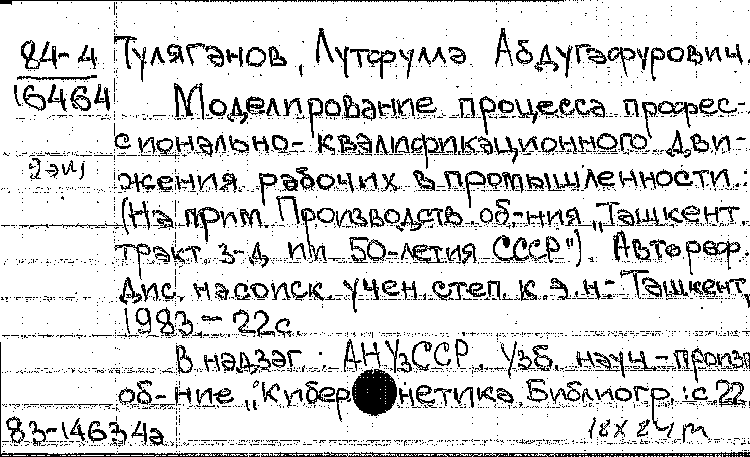 84-4 Туляганов, Лутфулла Абдугафурович.
16464 Моделирование процесса профес-
сионально-квалификационного дви-
2 экз жения рабочих в промышленности.:
(На прим. Производств. об-ния „Ташкент.
тракт. з-д им 50-летия СССР"). Автореф.
дис. на соиск. учен. степ. к.э.н.- Ташкент,
1983.- 22с.
В надзаг.: АН УзССР. Узб. науч.-произв
об-ние „Кибернетика. Библиогр.: с.22
83-14634а 18х24т